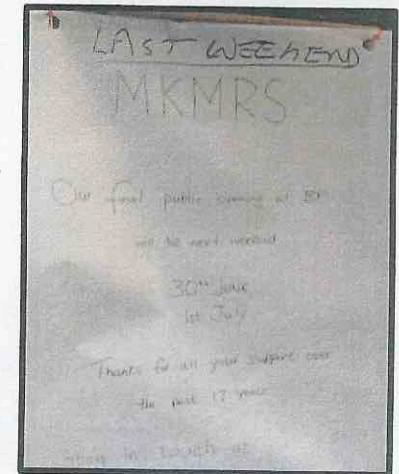 LAST WEEKEND
MKMRS
Our final public running at
will be next weekend
30TH June
1st July
Thanks for all your support over
the past 17 years
in touch at